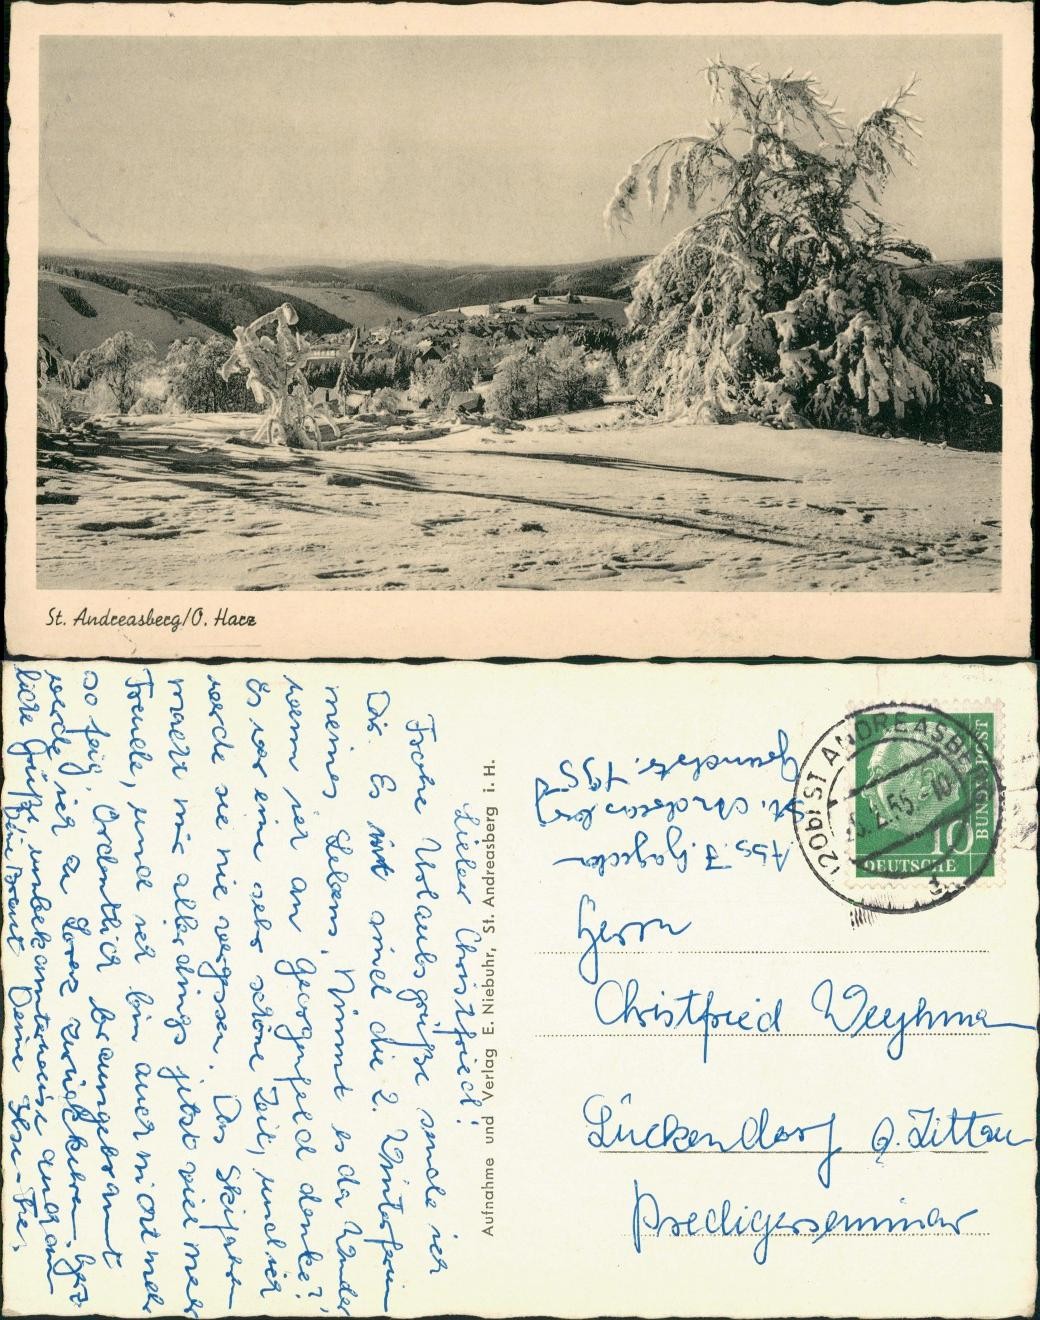 St. Andreasberg/O. Harz
Lieber Christfried!
Frohe Urlaubsgrüße sende ich
Dir. Es sind die 2. Winterferien
meines Lebens. Nimmt es da Wunder,
wenn ich an Georgenfeld denke?
Es war eine sehr schöne Zeit, und ich
werde sie nie vergessen. Das Skifahren
macht mir allerdings jetzt viel mehr
Freude, und ich bin auch nicht mehr
so feig. Ordentlich braungebrannt
werde ich zu Lorenz zurückkehren. Herz-
liche Grüße unbekannterweise auch an
Deine Braut Deine
Aufnahme und Verlag E. Niebuhr, St. Andreasberg i. H.
St. Andreasberg
(20b) ST. ANDREASBERG
.2.55.-10
10
DEUTSCHE
BUNDESPOST
Herrn
Christfried Weyhma
Lückendorf b. Zittau
Predigerseminar